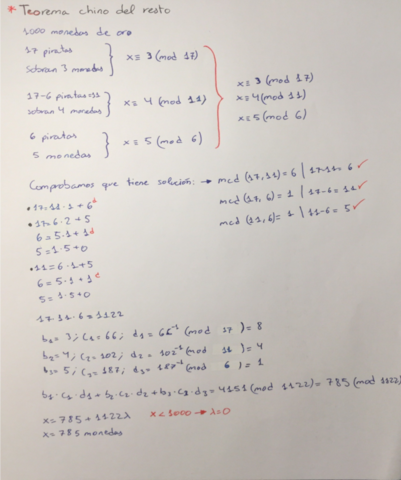 * Teorema chino del resto
1000 monedas de oro
17 piratas
Sobran 3 monedas
x ≡ 3 (mod 17)
17-6 piratas=11
sobran 4 monedas
x ≡ 4 (mod 11)
6 piratas
5 monedas
x ≡ 5 (mod 6)
x ≡ 3 (mod 17)
x ≡ 4 (mod 11)
x ≡ 5 (mod 6)
Comprobamos que tiene solución: → mcd (17,11) = 6 | 17-11 = 6 ✓
mcd (17, 6) = 1 | 17-6 = 11 ✓
mcd (11,6) = 1 | 11-6 = 5 ✓
• 17=11·1+6
• 17=6·2+5
6=5·1+1
5=1·5+0
• 11=6·1+5
6=5·1+1
5=1·5+0
17·11·6=1122
b₁=3; c₁=66; d₁=66⁻¹ (mod 17) = 8
b₂=4; c₂=102; d₂=102⁻¹ (mod 11) = 4
b₃=5; c₃=187; d₃=187⁻¹ (mod 6) = 1
b₁·c₁·d₁+b₂·c₂·d₂+b₃·c₃·d₃=4151 (mod 1122)=785 (mod 1122)
x=785+1122λ x<1000 → λ=0
x=785 monedas